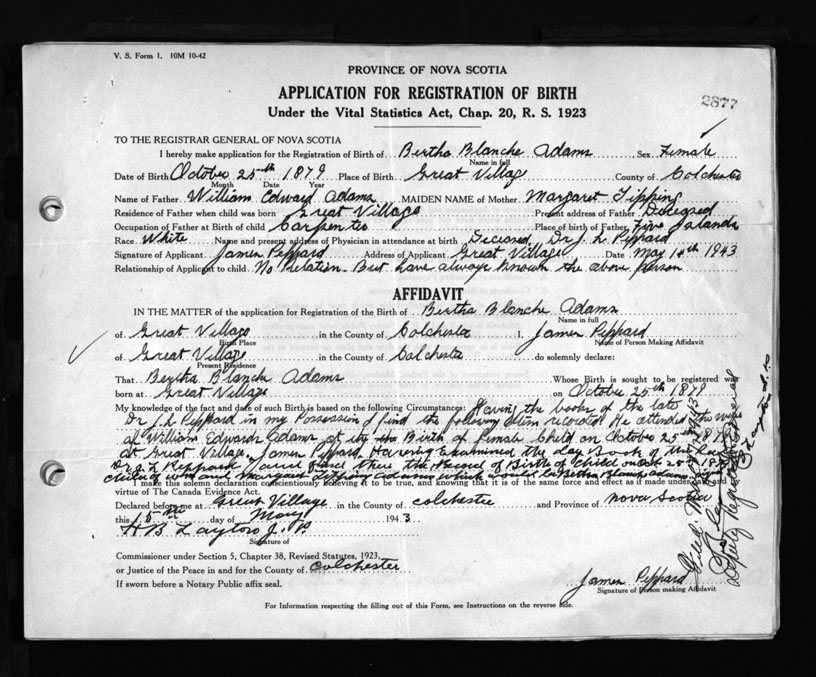 V. S. Form 1. 10M 10-42
PROVINCE OF NOVA SCOTIA
APPLICATION FOR REGISTRATION OF BIRTH
2877
Under the Vital Statistics Act, Chap. 20, R. S. 1923
TO THE REGISTRAR GENERAL OF NOVA SCOTIA
I hereby make application for the Registration of Birth of Bertha Blanche Adams Sex Female
Name in full
Date of Birth October 25th 1879 Place of Birth Great Village County of Colchester
Month Date Year
Name of Father William Edward Adams MAIDEN NAME of Mother Margaret Tipping
Residence of Father when child was born Great Village Present address of Father Deceased
Occupation of Father at Birth of child Carpenter Place of birth of Father Five Islands
Race White Name and present address of Physician in attendance at birth Deceased, Dr J L Peppard
Signature of Applicant James Peppard Address of Applicant Great Village Date May 14th 1943
Relationship of Applicant to child No Relation. But have always known the above person
AFFIDAVIT
IN THE MATTER of the application for Registration of the Birth of Bertha Blanche Adams
Name in full
of Great Village in the County of Colchester I, James Peppard
Birth Place Name of Person Making Affidavit
of Great Village in the County of Colchester do solemnly declare:
Present Residence
That Bertha Blanche Adams Whose Birth is sought to be registered was
born at Great Village on October 25th 1879
My knowledge of the fact and date of such Birth is based on the following Circumstances: Having the books of the late
Dr J L Peppard in my Possession I find the following item recorded. He attended the wife
of William Edward Adams at the Birth of Female Child on October 25th 1879
at Great Village. James Peppard. Having Examined the day Book of the late
Dr J L Peppard and find there the Record of Birth of Child on Oct 25th 1879
child of Wm and Margaret Tipping Adams which would be Bertha Blanche Adams
I make this solemn declaration conscientiously believing it to be true, and knowing that it is of the same force and effect as if made under oath by
virtue of The Canada Evidence Act.
Declared before me at Great Village in the County of Colchester and Province of Nova Scotia
this 15th day of May 1943
H B Layton J. P.
Signature of
Commissioner under Section 5, Chapter 38, Revised Statutes, 1923.
or Justice of the Peace in and for the County of Colchester
If sworn before a Notary Public affix seal.
James Peppard
Signature of Person making Affidavit
For Information respecting the filling out of this Form, see Instructions on the reverse side.
Deputy Registrar General